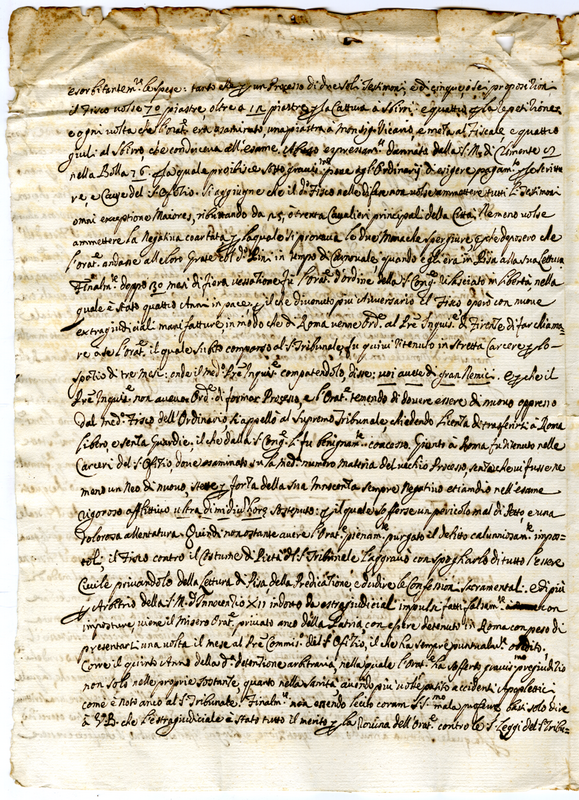 esorbitantem.te le spese: tanto che p un Processo di due soli Testimonij, e di cinque, o sei propositioni
il Fisco volse 70 piastre, oltre a 12 piastre p la Cattura a Sbirri: e quattro p la repetitione;
e ogni volta che l'Orat.e era esaminato, una piastra a Monsig.r Vicario, e meza al Fiscale e quattro
giulj al Sbirro che conduceva all'esame. Abuso espressam.te dannato dalla S. M. di Clemente
nella Bolla 76. p la quale proibisce sotto gravis.me pene agl'Ordinarij di esigere pagam.to p le scritture
re e Cause del S. Offitio. Si aggiugne che il d.o Fisco nelle difese non volse ammettere tutti i Testimonij
omni exceptione Maiores, ributtando da 25, o trenta Cavalieri principali della Città; Ne meno volse
ammettere la Negativa coartata p la quale si provava le due Monache spergiure, p che deposero che
l'Orat.e andasse alle loro Grate in tempo di Carnovale, quando egl'era in Pisa alla sua Lettura
Finalm.te doppo 30 mesi di fiera vessatione fu l'Orat.e d'ordine della S. Cong.ne rilasciato in libertà, nella
quale è stato quattro Anni in pace; p il che divenuto più Avversario il Fisco operò con nuove
extragiudiciali manifatture in modo che di Roma venne Ord.e al P.re Inquis.re di Firenze di far chiamare
re a se l'Orat.e il quale subito comparso al S. Tribunale, fu quivi ritenuto in stretta Carcere p lo
spatio di tre Mesi: onde il med.o P.re Inquis.re compatendolo, disse: voi avete di gran Nemici. e p che il
P.re Inquis.re non aveva Ord.e di formar Processo, e l'Orat.e temendo di dovere essere di nuovo oppresso
dal med.o Fisco dell'Ordinario s'appellò al Supremo Tribunale chiedendo licenza di trasferirsi a Roma
libero, e senza guardie; il che dalla S. Cong.ne li fu benignam.te concesso. Giunto a Roma fu ritenuto nelle
Carceri del S. Offitio dove esaminato su la med.a numero materia del vecchio Processo, senza che vi fusse ne
meno un Neo di nuovo, stette p forza della sua Innocenza sempre Negativo etiandio nell'esame
rigoroso afflittivo ultra dimidiu horæ sostenuto: p il quale sofferse un pericoloso mal di Petto e una
dolorosa allentatura. Quindi non ostante avere l'Orat.e pienam.te purgato il delitto calunniosam.te impostoli
toli; il Fisco contro il costume di Pietà di S. Tribunale l'aggravò con spogliarlo di tutto l'essere
Civile privandolo della Lettura di Pisa, della Predicatione e di udire le Confessioni Sacramentali. e di più
p Arbitrio della S. M. d'Innocentio XII indotto da estragiudiciali impulsi fatti falsam.te con
imposture, viene il Misero Orat.e privato anco della Patria con essere detenuto in Roma con peso di
presentarsi una volta il mese al P.re Commis.o del S. Offitio, il che ha sempre puntualm.te ordito.
Corre il quinto Anno della d.a detentione arbitraria nella quale l'Orat.e ha sofferto gravis.mo pregiuditio
non solo nelle proprie sostanze, quanto nella sanità avendo più volte patito accidenti Apopletici
come è noto anco al S. Tribunale. Finalm.te non essendo
a V. B. che l'estragiudiciale è stato tutto il merito p la Rovina dell'Orat.e contro le S. Leggi del S. Tribu-